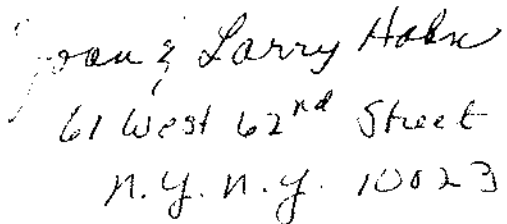 Joan & Larry Hahn
61 West 62nd Street
N.Y. N.Y. 10023